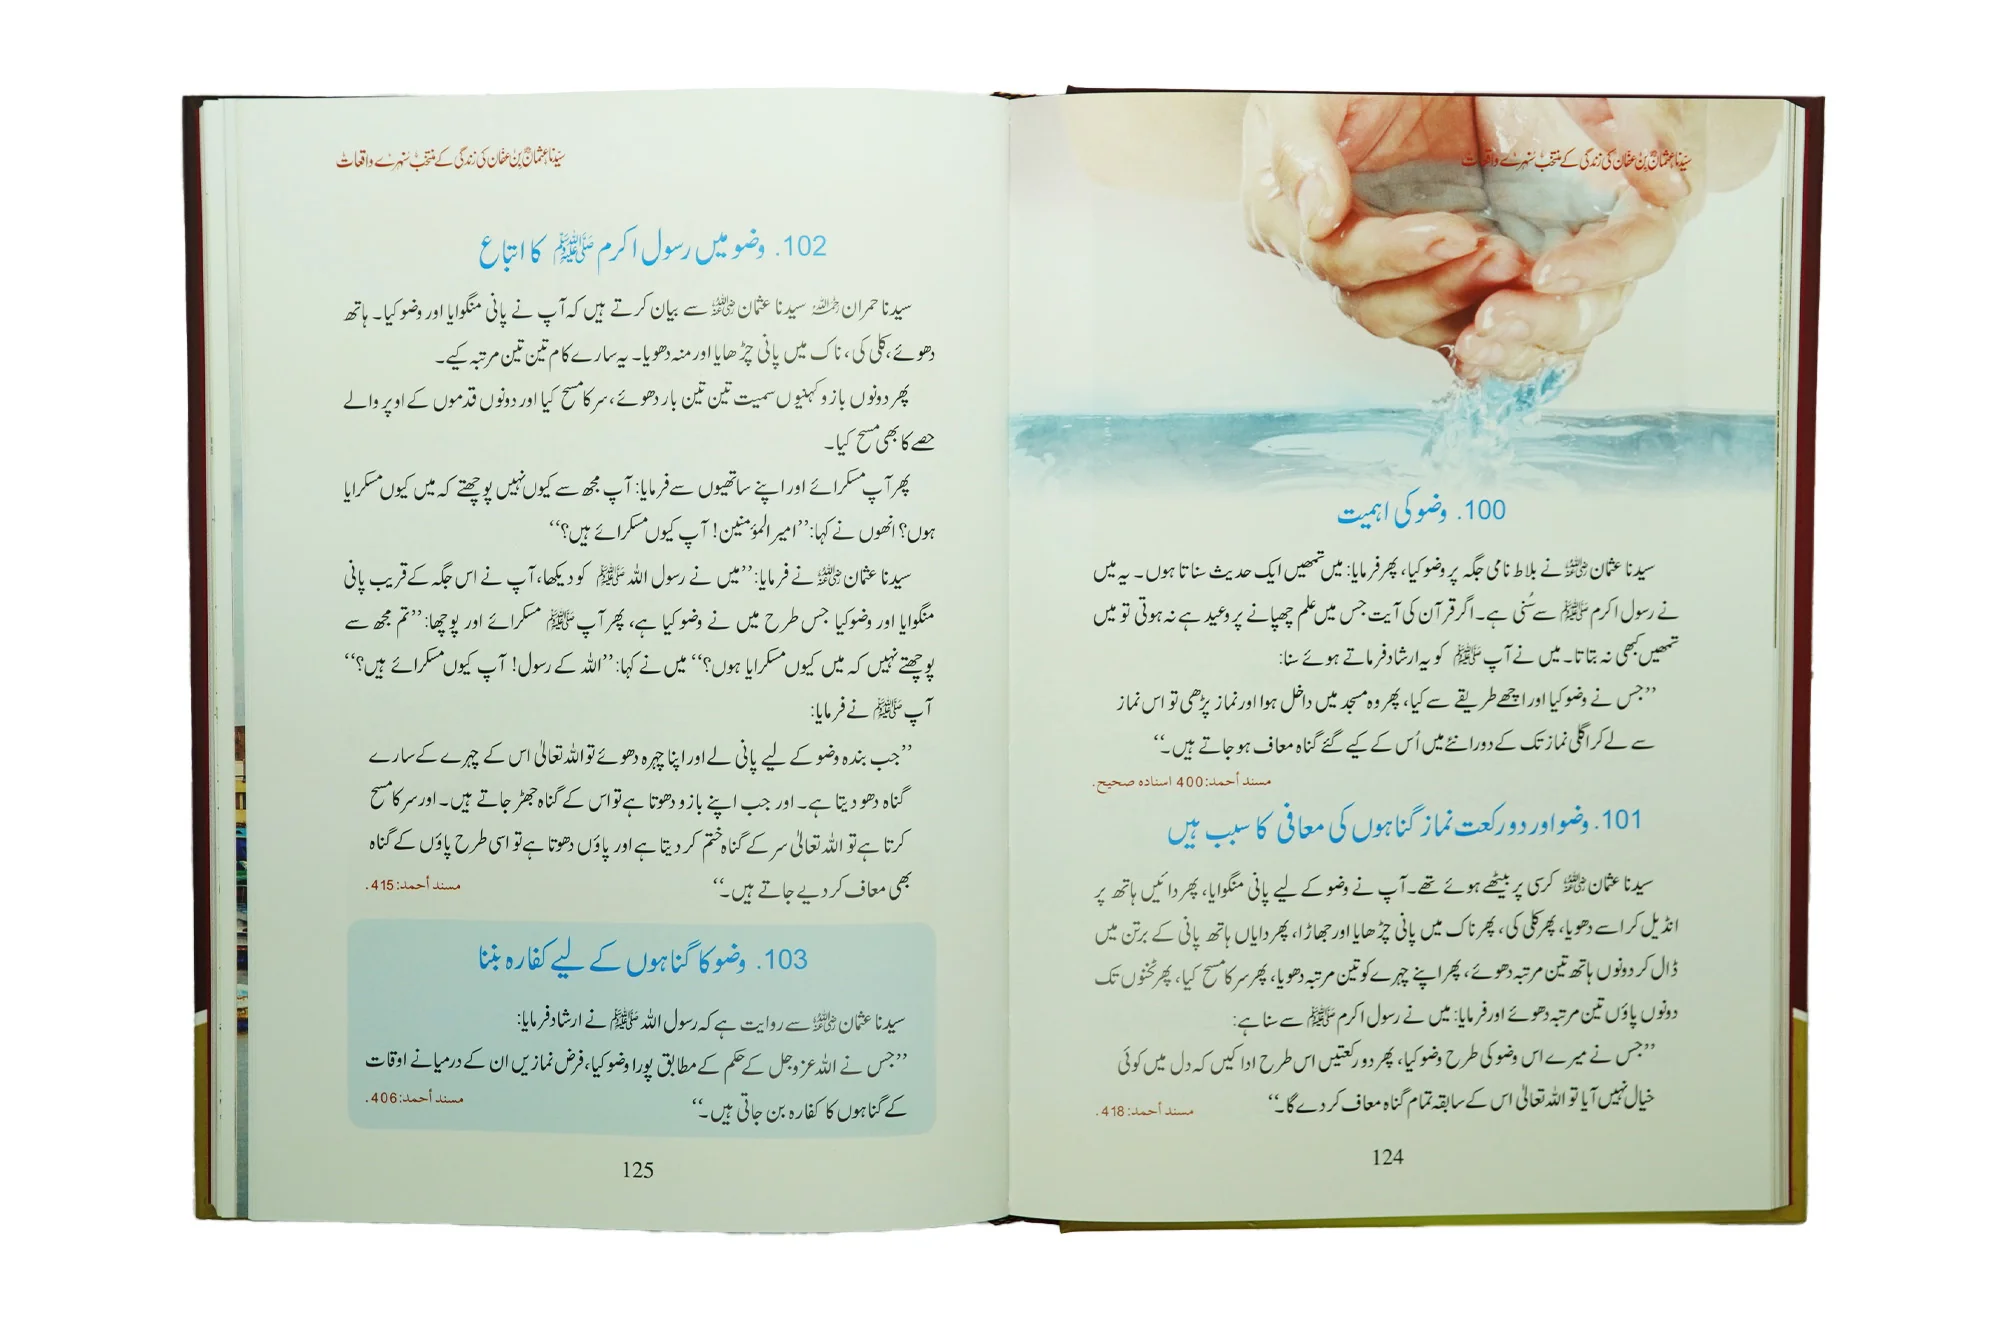 سیّدنا عثمانؓ بن عفان کی زندگی کے منتخب سنہرے واقعات
100. وضو کی اہمیت
سیدنا عثمان رضی اللہ عنہ نے بلاط نامی جگہ پر وضو کیا، پھر فرمایا: میں تمھیں ایک حدیث سناتا ہوں۔ یہ میں
نے رسول اکرم ﷺ سے سُنی ہے۔ اگر قرآن کی آیت جس میں علم چھپانے پر وعید ہے نہ ہوتی تو میں
تمھیں کبھی نہ بتاتا۔ میں نے آپ ﷺ کو یہ ارشاد فرماتے ہوئے سنا:
’’جس نے وضو کیا اور اچھے طریقے سے کیا، پھر وہ مسجد میں داخل ہوا اور نماز پڑھی تو اس نماز
سے لے کر اگلی نماز تک کے دورانئے میں اُس کے کیے گئے گناہ معاف ہو جاتے ہیں۔‘‘
مسند أحمد:400 اسناده صحيح.
101. وضو اور دو رکعت نماز گناہوں کی معافی کا سبب ہیں
سیدنا عثمان رضی اللہ عنہ کرسی پر بیٹھے ہوئے تھے۔ آپ نے وضو کے لیے پانی منگوایا، پھر دائیں ہاتھ پر
انڈیل کر اسے دھویا، پھر کلی کی، پھر ناک میں پانی چڑھایا اور جھاڑا، پھر دایاں ہاتھ پانی کے برتن میں
ڈال کر دونوں ہاتھ تین مرتبہ دھوئے، پھر اپنے چہرے کو تین مرتبہ دھویا، پھر سر کا مسح کیا، پھر ٹخنوں تک
دونوں پاؤں تین مرتبہ دھوئے اور فرمایا: میں نے رسول اکرم ﷺ سے سنا ہے:
’’جس نے میرے اس وضو کی طرح وضو کیا، پھر دو رکعتیں اس طرح ادا کیں کہ دل میں کوئی
خیال نہیں آیا تو اللہ تعالیٰ اس کے سابقہ تمام گناہ معاف کر دے گا۔‘‘ مسند أحمد:418.
124
سیّدنا عثمانؓ بن عفان کی زندگی کے منتخب سنہرے واقعات
102. وضو میں رسول اکرم ﷺ کا اتباع
سیدنا حمران رحمہ اللہ سیدنا عثمان رضی اللہ عنہ سے بیان کرتے ہیں کہ آپ نے پانی منگوایا اور وضو کیا۔ ہاتھ
دھوئے، کلی کی، ناک میں پانی چڑھایا اور منہ دھویا۔ یہ سارے کام تین تین مرتبہ کیے۔
پھر دونوں بازو کہنیوں سمیت تین تین بار دھوئے، سر کا مسح کیا اور دونوں قدموں کے اوپر والے
حصے کا بھی مسح کیا۔
پھر آپ مسکرائے اور اپنے ساتھیوں سے فرمایا: آپ مجھ سے کیوں نہیں پوچھتے کہ میں کیوں مسکرایا
ہوں؟ انھوں نے کہا: ’’امیر المؤمنین! آپ کیوں مسکرائے ہیں؟‘‘
سیدنا عثمان رضی اللہ عنہ نے فرمایا: ’’میں نے رسول اللہ ﷺ کو دیکھا، آپ نے اس جگہ کے قریب پانی
منگوایا اور وضو کیا جس طرح میں نے وضو کیا ہے، پھر آپ ﷺ مسکرائے اور پوچھا: ’’تم مجھ سے
پوچھتے نہیں کہ میں کیوں مسکرایا ہوں؟‘‘ میں نے کہا: ’’اللہ کے رسول! آپ کیوں مسکرائے ہیں؟‘‘
آپ ﷺ نے فرمایا:
’’جب بندہ وضو کے لیے پانی لے اور اپنا چہرہ دھوئے تو اللہ تعالیٰ اس کے چہرے کے سارے
گناہ دھو دیتا ہے۔ اور جب اپنے بازو دھوتا ہے تو اس کے گناہ جھڑ جاتے ہیں۔ اور سر کا مسح
کرتا ہے تو اللہ تعالیٰ سر کے گناہ ختم کر دیتا ہے اور پاؤں دھوتا ہے تو اسی طرح پاؤں کے گناہ
بھی معاف کر دیے جاتے ہیں۔‘‘ مسند أحمد:415.
103. وضو کا گناہوں کے لیے کفارہ بننا
سیدنا عثمان رضی اللہ عنہ سے روایت ہے کہ رسول اللہ ﷺ نے ارشاد فرمایا:
’’جس نے اللہ عزوجل کے حکم کے مطابق پورا وضو کیا، فرض نمازیں ان کے درمیانے اوقات
کے گناہوں کا کفارہ بن جاتی ہیں۔‘‘ مسند أحمد:406.
125